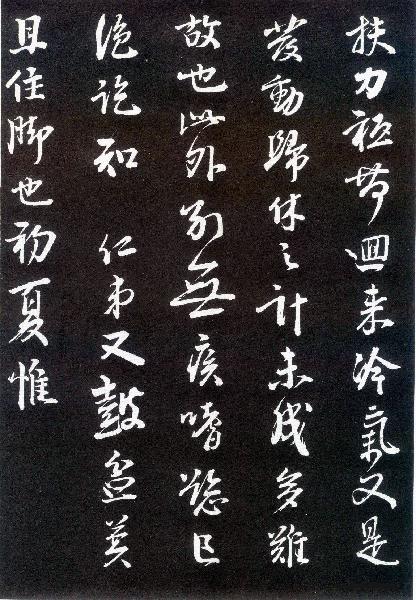 扶力迴来冷氣又是
發動歸休之計未成多難
故也此外別無疾嗜慾已
絶訖知仁弟又鼓盆莫
且住脚也初夏惟